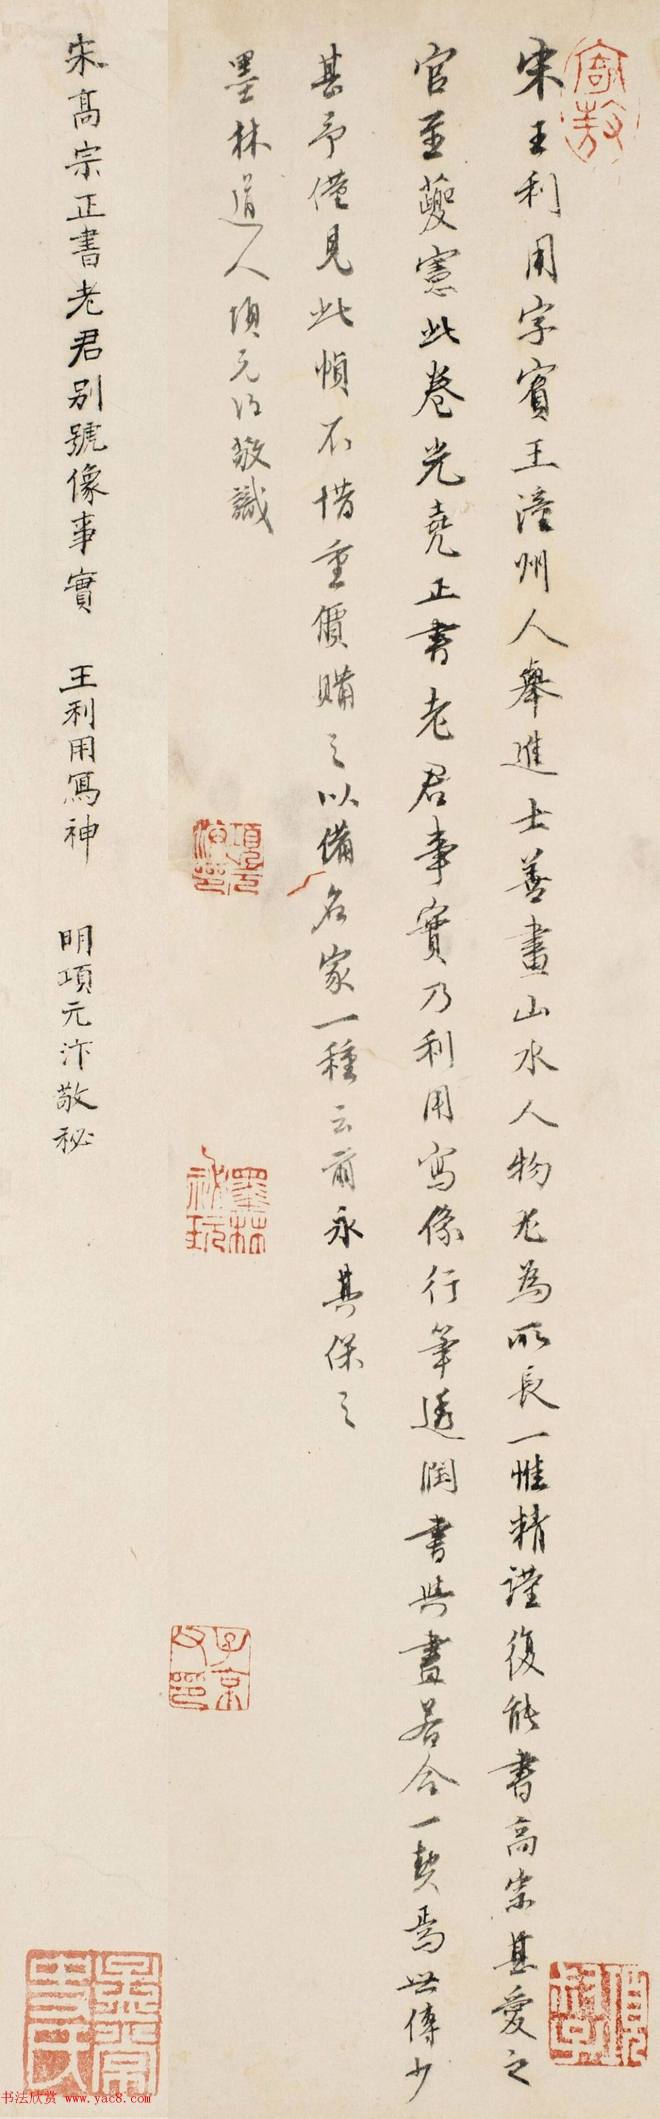 宋王利用字賓王潼州人舉進士善畫山水人物尤為所長一惟精謹復能書高宗甚愛之
官至夔憲此卷光堯正書老君事實乃利用寫像行筆遒潤書與畫若合一契焉世傳少
甚予僅見此幀不惜重價購之以備名家一種云爾永其保之
墨林道人項元汴敬識
宋高宗正書老君別號像事實 王利用寫神 明項元汴敬秘
項元汴印
墨林祕玩
子京父印
书法欣赏 www.yac8.com